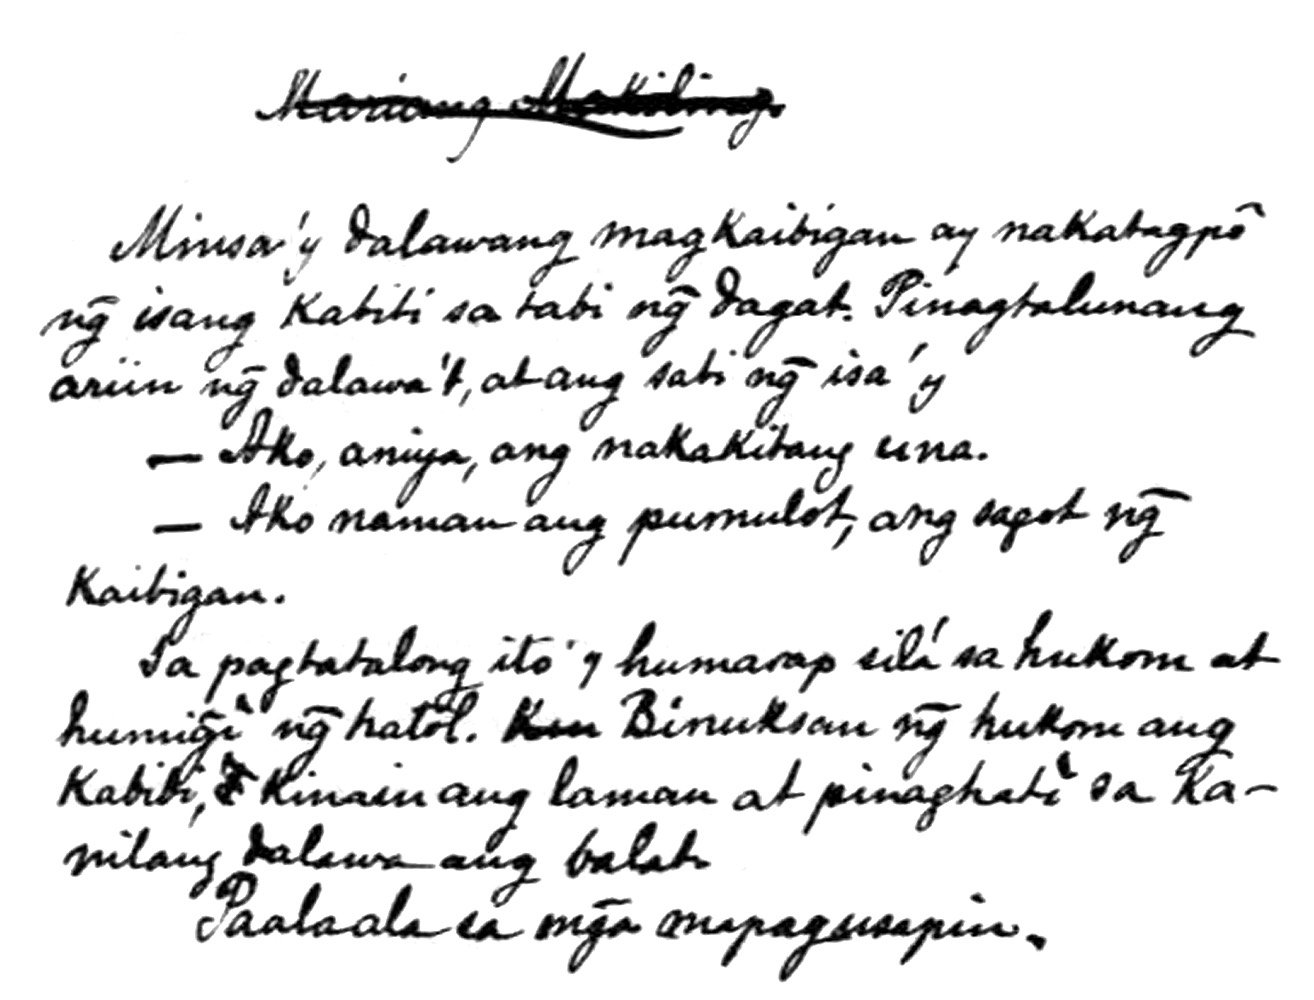 Mariang Makiling.
Minsa'y dalawang magkaibigan ay nakatagpô
ng̃ isang kabibi sa tabi ng̃ dagat. Pinagtalunang
ariin ng̃ dalawa't, at ang sabi ng̃ isa'y
— Ako, aniya, ang nakakitang una.
— Ako naman ang pumulot, ang sagot ng̃
kaibigan.
Sa pagtatalong ito'y humarap silá sa hukom at
humig̃ì ng̃ hatol. Binuksan ng̃ hukom ang
kabibi, kinain ang laman at pinaghatì sa ka-
nilang dalawa ang balat.
Paalaala sa mg̃a mapagusapin.